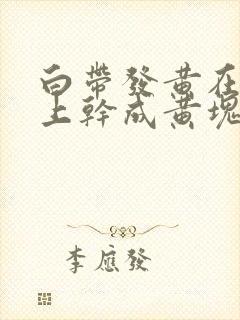 白帶發黃在
上幹成黃塊
李應發